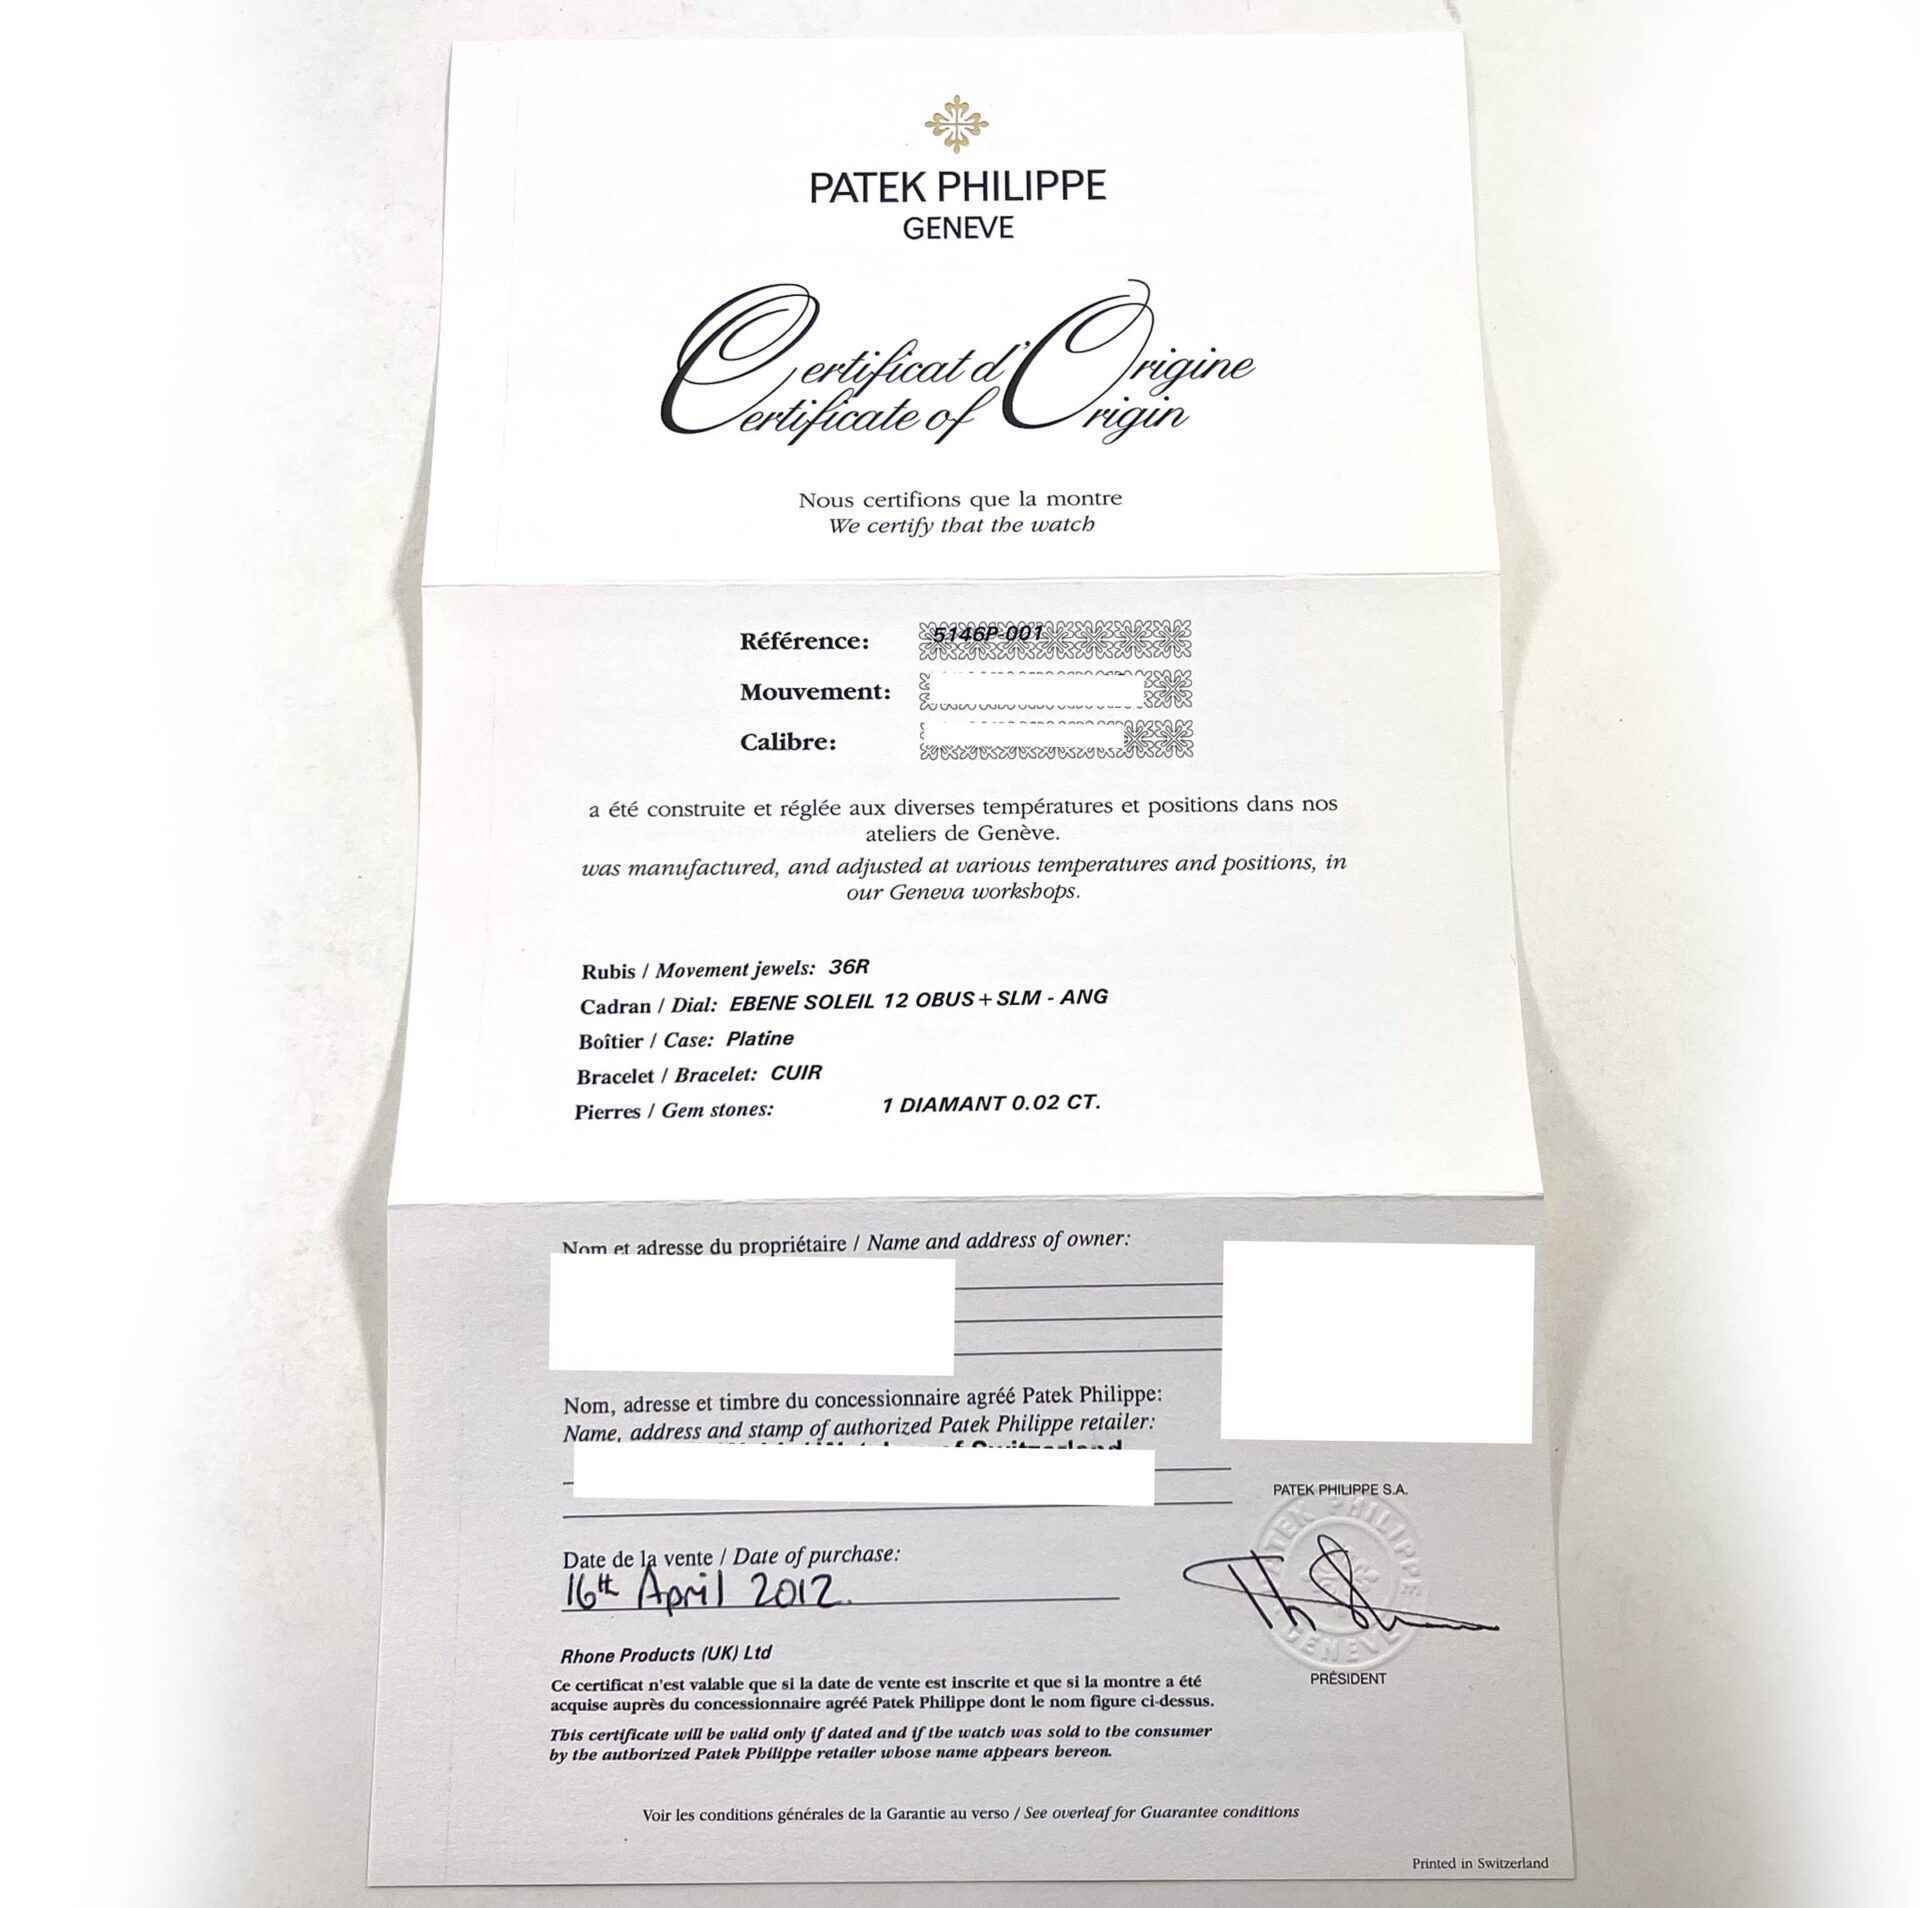 PATEK PHILIPPE
GENEVE
Certificat d'Origine
Certificate of Origin
Nous certifions que la montre
We certify that the watch
Référence: 5146P-001
Mouvement:
Calibre:
a été construite et réglée aux diverses températures et positions dans nos
ateliers de Genève.
was manufactured, and adjusted at various temperatures and positions, in
our Geneva workshops.
Rubis / Movement jewels: 36R
Cadran / Dial: EBENE SOLEIL 12 OBUS+SLM - ANG
Boîtier / Case: Platine
Bracelet / Bracelet: CUIR
Pierres / Gem stones: 1 DIAMANT 0.02 CT.
Nom et adresse du propriétaire / Name and address of owner:
Nom, adresse et timbre du concessionnaire agréé Patek Philippe:
Name, address and stamp of authorized Patek Philippe retailer:
of Switzerland
PATEK PHILIPPE S.A.
PATEK PHILIPPE
GENEVE
Date de la vente / Date of purchase:
16th April 2012.
PRÉSIDENT
Rhone Products (UK) Ltd
Ce certificat n'est valable que si la date de vente est inscrite et que si la montre a été
acquise auprès du concessionnaire agréé Patek Philippe dont le nom figure ci-dessus.
This certificate will be valid only if dated and if the watch was sold to the consumer
by the authorized Patek Philippe retailer whose name appears hereon.
Voir les conditions générales de la Garantie au verso / See overleaf for Guarantee conditions
Printed in Switzerland